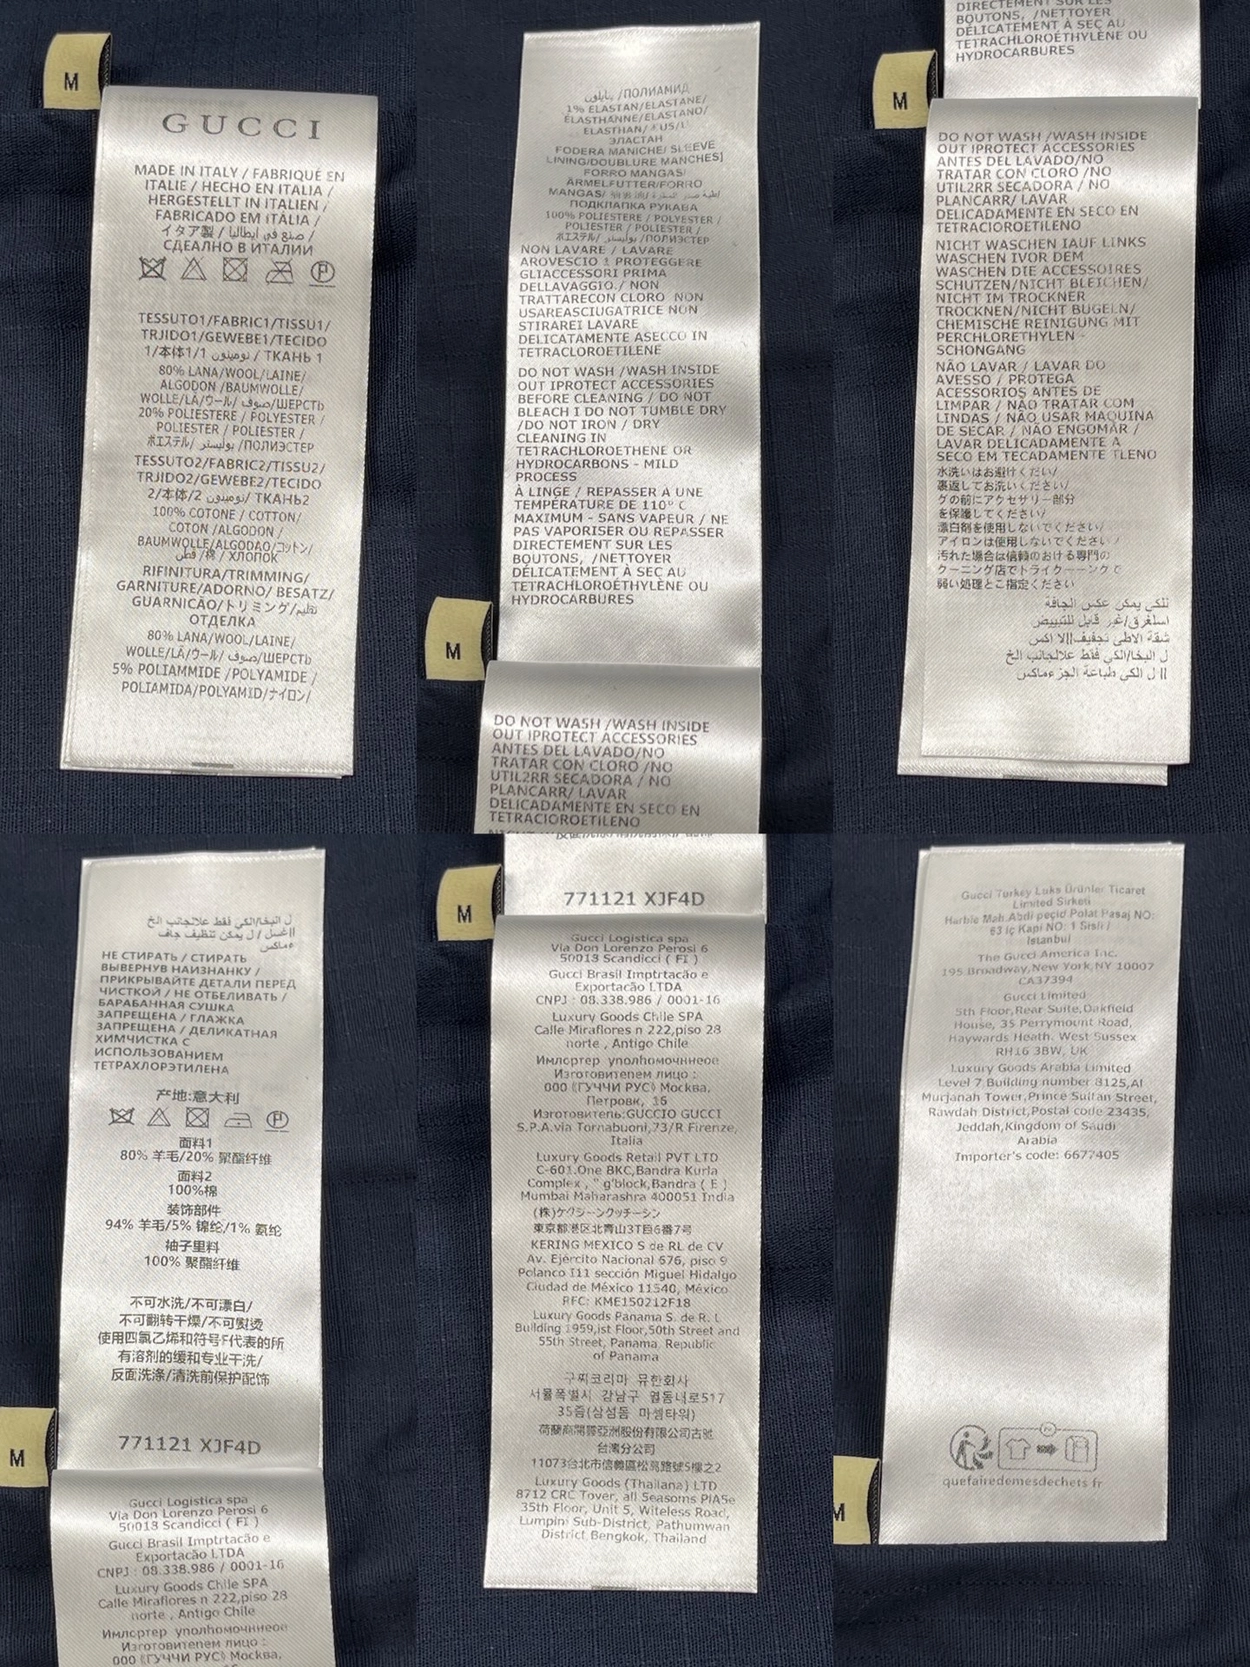 M
GUCCI
MADE IN ITALY / FABRIQUÉ EN
ITALIE / HECHO EN ITALIA /
HERGESTELLT IN ITALIEN /
FABRICADO EM ITÁLIA /
イタア製 / صنع في ايطاليا /
СДЕАЛНО В ИТАЛИИ
P
TESSUTO1/FABRIC1/TISSU1/
TRJIDO1/GEWEBE1/TECIDO
1/本体1/1 / ТКАНЬ 1
80% LANA/WOOL/LAINE/
ALGODON /BAUMWOLLE/
WOLLE/LÃ/ウール/ صوف/ШЕРСТЬ
20% POLIESTERE / POLYESTER /
POLIESTER / POLIESTER /
ポエステル/ بوليستر /ПОЛИЭСТЕР
TESSUTO2/FABRIC2/TISSU2/
TRJIDO2/GEWEBE2/TECIDO
2/本体/2 / ТКАНЬ2
100% COTONE / COTTON/
COTON /ALGODON /
BAUMWOLLE/ALGODAO/コットン/
قطن /棉/ ХЛОПОК
RIFINITURA/TRIMMING/
GARNITURE/ADORNO/ BESATZ/
GUARNICÃO/トリミング/
ОТДЕЛКА
80% LANA/WOOL/LAINE/
WOLLE/LÃ/ウール/ صوف/ШЕРСТЬ
5% POLIAMMIDE /POLYAMIDE /
POLIAMIDA/POLYAMID/ナイロン/
/ПОЛИАМИД
1% ELASTAN/ELASTANE/
ÉLASTHANNE/ELASTANO/
ELASTHAN/
ЭЛАСТАН
FODERA MANICHE/ SLEEVE
LINING/DOUBLURE MANCHES]
FORRO MANGAS/
ÄRMELFUTTER/FORRO
MANGAS/
ПОДКЛАПКА РУКАВА
100% POLIESTERE / POLYESTER /
POLIESTER / POLIESTER /
ポエステル/ بوليستر /ПОЛИЭСТЕР
NON LAVARE / LAVARE
AROVESCIO PROTEGGERE
GLIACCESSORI PRIMA
DELLAVAGGIO./ NON
TRATTARECON CLORO NON
USAREASCIUGATRICE NON
STIRAREI LAVARE
DELICATAMENTE ASECCO IN
TETRACLOROETILENE
DO NOT WASH /WASH INSIDE
OUT IPROTECT ACCESSORIES
BEFORE CLEANING / DO NOT
BLEACH I DO NOT TUMBLE DRY
/DO NOT IRON / DRY
CLEANING IN
TETRACHLOROETHENE OR
HYDROCARBONS - MILD
PROCESS
À LINGE / REPASSER À UNE
TEMPÉRATURE DE 110° C
MAXIMUM - SANS VAPEUR / NE
PAS VAPORISER OU REPASSER
DIRECTEMENT SUR LES
BOUTONS, /NETTOYER
DÉLICATEMENT À SEC AU
TETRACHLOROÉTHYLÈNE OU
HYDROCARBURES
M
DO NOT WASH /WASH INSIDE
OUT IPROTECT ACCESSORIES
ANTES DEL LAVADO/NO
TRATAR CON CLORO /NO
UTIL2RR SECADORA / NO
PLANCARR/ LAVAR
DELICADAMENTE EN SECO EN
TETRACIOROETILENO
DIRECTEMENT SUR LES
BOUTONS, /NETTOYER
DÉLICATEMENT À SEC AU
TETRACHLOROÉTHYLÈNE OU
HYDROCARBURES
M
DO NOT WASH /WASH INSIDE
OUT IPROTECT ACCESSORIES
ANTES DEL LAVADO/NO
TRATAR CON CLORO /NO
UTIL2RR SECADORA / NO
PLANCARR/ LAVAR
DELICADAMENTE EN SECO EN
TETRACIOROETILENO
NICHT WASCHEN IAUF LINKS
WASCHEN IVOR DEM
WASCHEN DIE ACCESSOIRES
SCHÜTZEN/NICHT BLEICHEN/
NICHT IM TROCKNER
TROCKNEN/NICHT BÜGELN/
CHEMISCHE REINIGUNG MIT
PERCHLORETHYLEN -
SCHONGANG
NÃO LAVAR / LAVAR DO
AVESSO / PROTEGA
ACESSORIOS ANTES DE
LIMPAR / NÃO TRATAR COM
LINDAS / NÃO USAR MAQUINA
DE SECAR / NÃO ENGOMAR /
LAVAR DELICADAMENTE A
SECO EM TECADAMENTE TLENO
水洗いはお避けください/
裏返してお洗いください/
グの前にアクセサリー部分
を保護してください/
漂白剤を使用しないでください/
アイロンは使用しないでください/
汚れた場合は信頼のおける専門の
クーニング店でトライクーーング
弱い処理とご指定ください
للكي يمكن عكس الجافة
اسلغرق/غير قابل للتبييض
شقة الاطى تجفيف||لا اكس
ل البخا/الكي فقط علالجانب الخ
اا ل الكى طباعة الجزءماكس
ل البخا/الكي فقط علالجانب الخ
ااغسل / ل يمكن تنظيف جاف
ءماكس
НЕ СТИРАТЬ / СТИРАТЬ
ВЫВЕРНУВ НАИЗНАНКУ /
ПРИКРЫВАЙТЕ ДЕТАЛИ ПЕРЕД
ЧИСТКОЙ / НЕ ОТБЕЛИВАТЬ /
БАРАБАННАЯ СУШКА
ЗАПРЕЩЕНА / ГЛАЖКА
ЗАПРЕЩЕНА / ДЕЛИКАТНАЯ
ХИМЧИСТКА С
ИСПОЛЬЗОВАНИЕМ
ТЕТРАХЛОРЭТИЛЕНА
产地:意大利
P
面料1
80% 羊毛/20% 聚酯纤维
面料2
100%棉
装饰部件
94% 羊毛/5% 锦纶/1% 氨纶
袖子里料
100% 聚酯纤维
不可水洗/不可漂白/
不可翻转干燥/不可熨烫
使用四氯乙烯和符号F代表的所
有溶剂的缓和专业干洗/
反面洗涤/清洗前保护配饰
771121 XJF4D
M
Gucci Logistica spa
Via Don Lorenzo Perosi 6
50018 Scandicci ( FI )
Gucci Brasil Imptrtacão e
Exportacão LTDA
CNPJ : 08.338.986 / 0001-16
Luxury Goods Chile SPA
Calle Miraflores n 222,piso 28
norte , Antigo Chile
Имлортер уполhомочннеое
Изготовитепем лицо :
ООО 《ГУЧЧИ РУС》 Москва,
771121 XJF4D
M
Gucci Logistica spa
Via Don Lorenzo Perosi 6
50018 Scandicci ( FI )
Gucci Brasil Imptrtacão e
Exportacão LTDA
CNPJ : 08.338.986 / 0001-16
Luxury Goods Chile SPA
Calle Miraflores n 222,piso 28
norte , Antigo Chile
Имлортер уполhомочннеое
Изготовитепем лицо :
ООО 《ГУЧЧИ РУС》 Москва,
Петровк, 16
Изготовитель:GUCCIO GUCCI
S.P.A.via Tornabuoni,73/R Firenze,
Italia
Luxury Goods Retail PVT LTD
C-601.One BKC,Bandra Kurla
Complex , " g'block,Bandra ( E )
Mumbai Maharashra 400051 India
(株)ケグジーンクッチーシン
東京都港区北青山3丁目6番7号
KERING MEXICO S de RL de CV
Av. Ejército Nacional 676, piso 9
Polanco I11 sección Miguel Hidalgo
Ciudad de México 11540, México
RFC: KME150212F18
Luxury Goods Panama S. de R. L
Building 1959,ist Floor,50th Street and
55th Street, Panama, Republic
of Panama
구찌코리마 유한회사
서울폭별시 강남구 월돔내로517
35즘(삼섬돔 마셈타워)
荷蘭商開曇亞洲股份有限公司古馳
台灣分公司
11073台北市信義區松高路號5樓之2
Luxury Goods (Thailana) LTD
8712 CRC Tover, all Seasoms PlA5e
35th Floor, Unit 5, Witeless Road,
Lumpini Sub-District, Pathumwan
District Bengkok, Thailand
Gucci Turkey Luks Ürünler Ticaret
Limited Sirketi
Harbie Mah.Abdi peçid Polat Pasaj NO:
63 iç Kapi NO: 1 Sisli /
Istanbul
The Gucci America Inc.
195 Broadway,New York,NY 10007
CA37394
Gucci Limited
5th Floor,Rear Suite,Oakfield
House, 35 Perrymount Road,
Haywards Heath. West Sussex
RH16 3BW, UK
Luxury Goods Arabia Limited
Level 7,Building number 8125,Al
Murjanah Tower,Prince Sultan Street,
Rawdah District,Postal code 23435,
Jeddah,Kingdom of Saudi
Arabia
Importer's code: 6677405
quefairedemesdechets fr
M